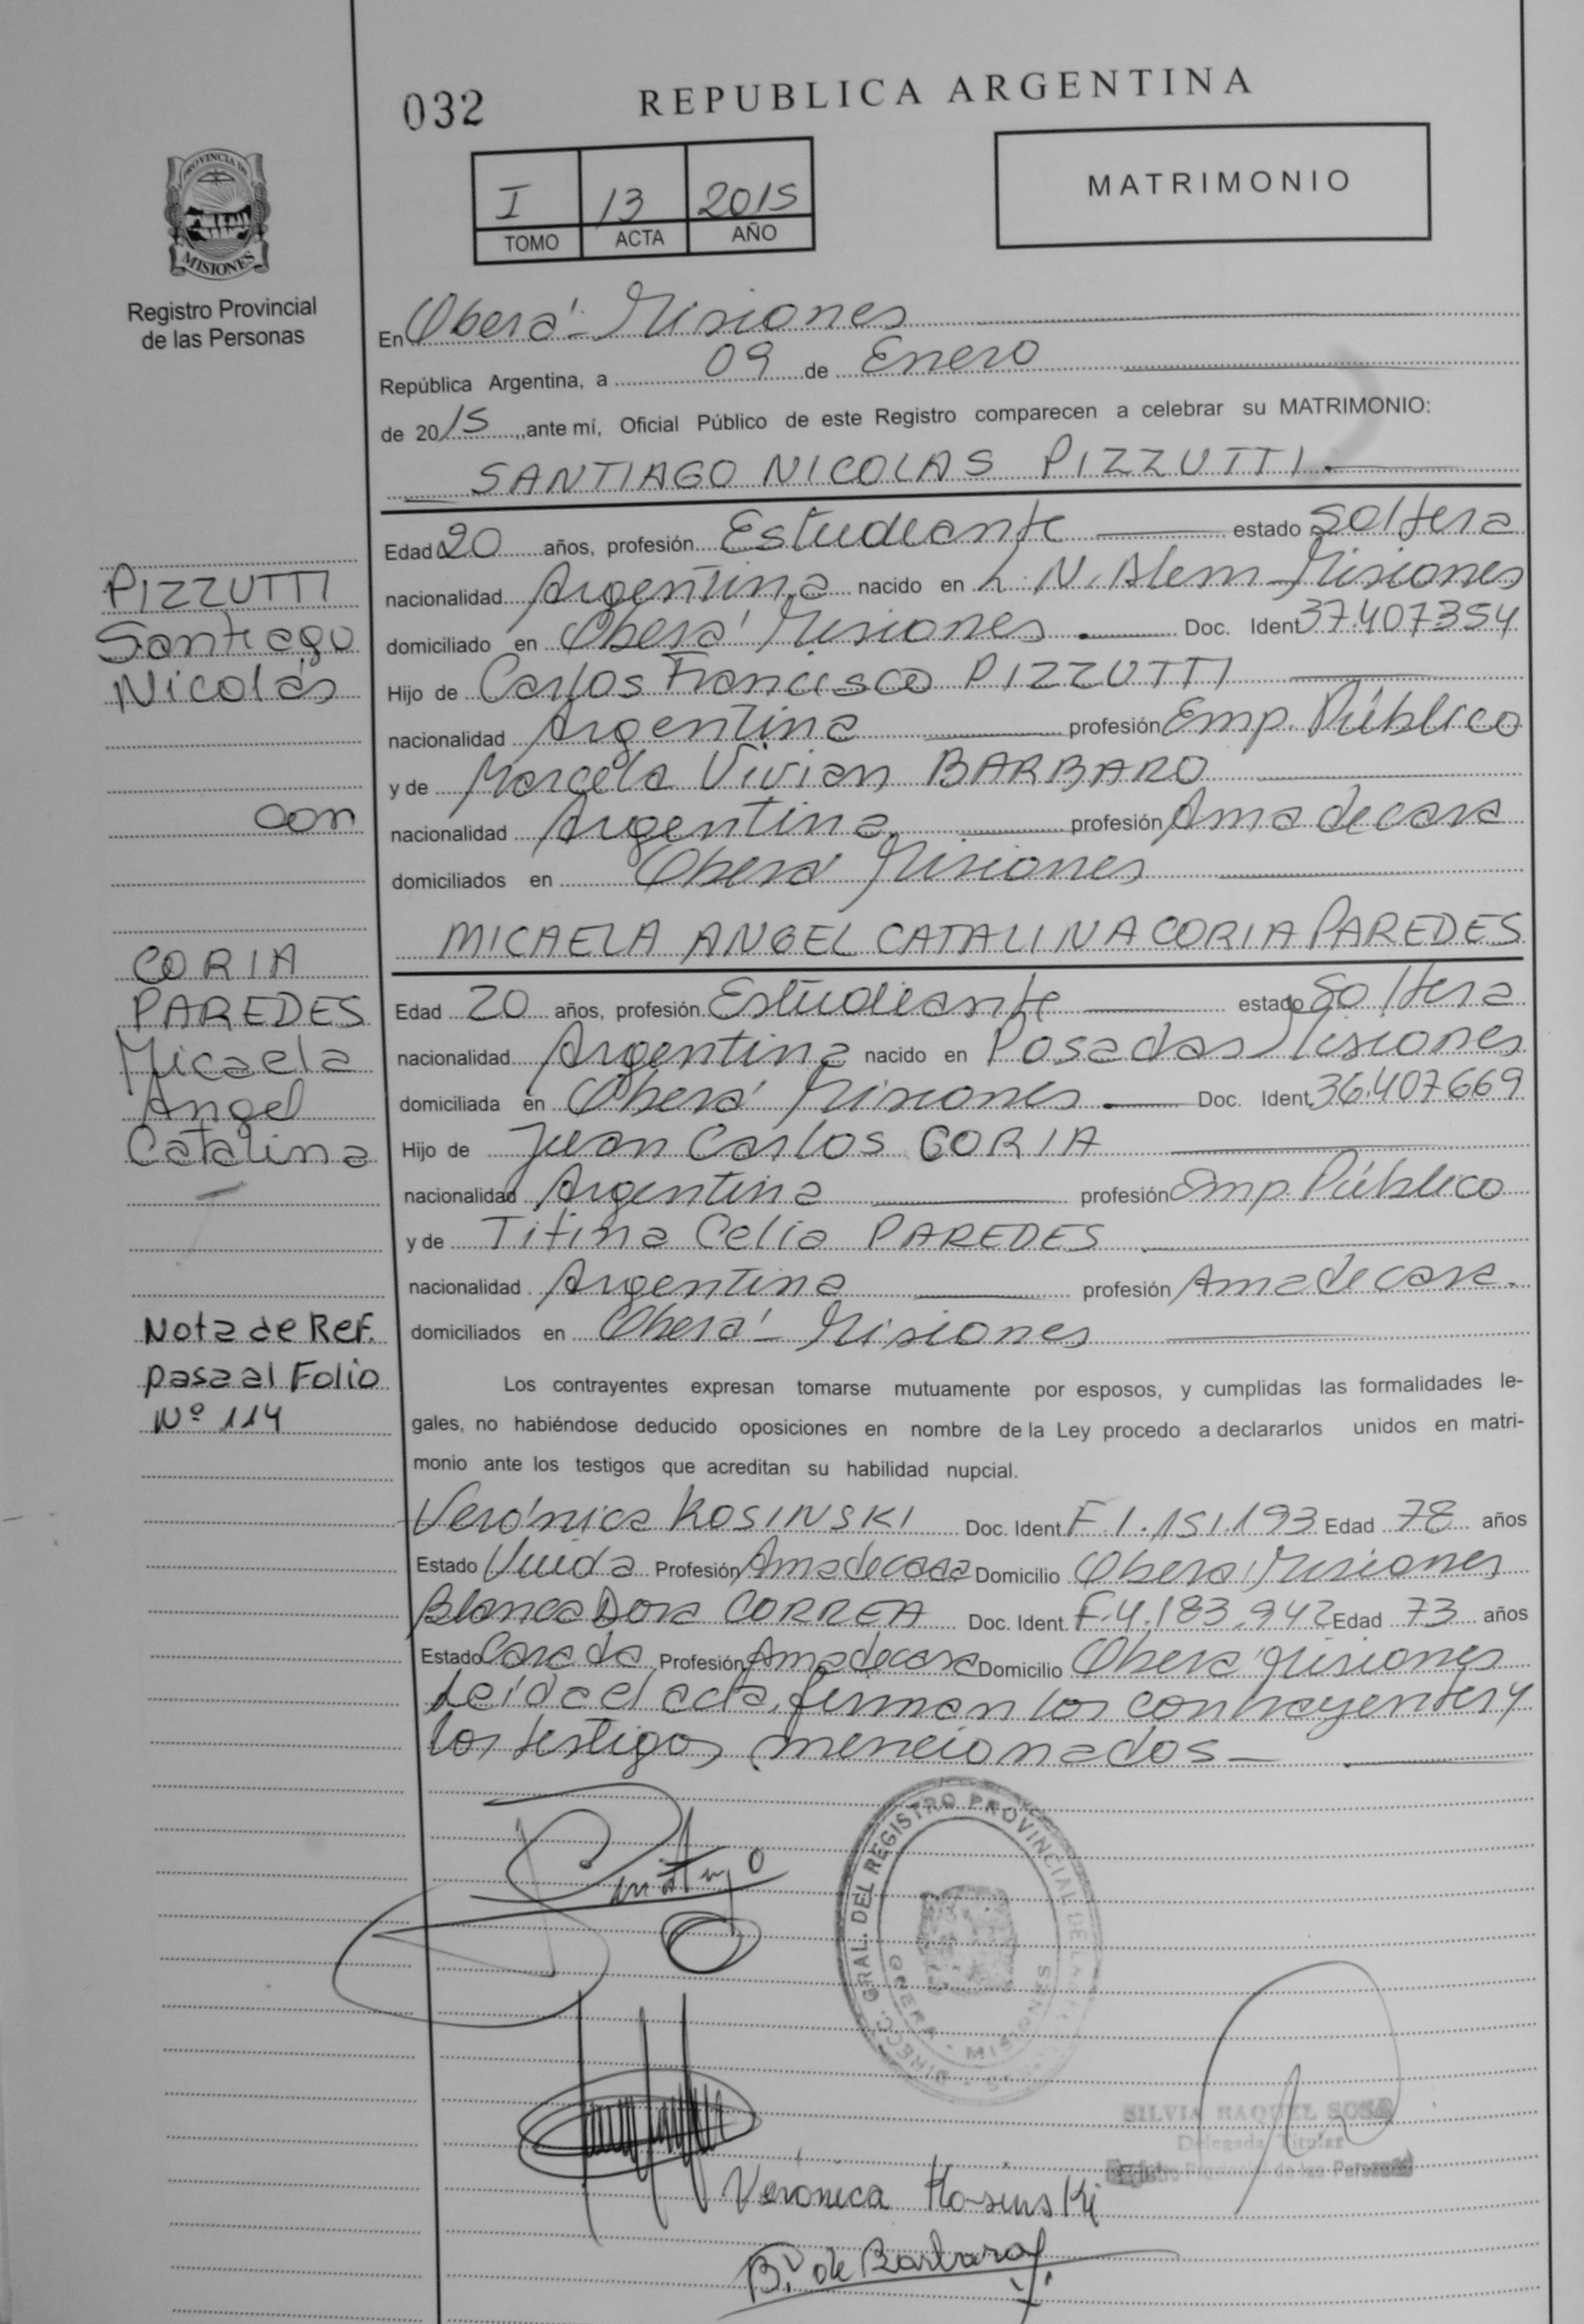 032
REPUBLICA ARGENTINA
PROVINCIA DE
MISIONES
Registro Provincial
de las Personas
I 13 2015
TOMO ACTA AÑO
MATRIMONIO
En Oberá - Misiones
República Argentina, a 09 de Enero
de 2015, ante mí, Oficial Público de este Registro comparecen a celebrar su MATRIMONIO:
SANTIAGO NICOLAS PIZZUTTI
Edad 20 años, profesión Estudiante estado Soltera
nacionalidad Argentina nacido en L. N. Alem - Misiones
domiciliado en Oberá Misiones Doc. Ident 37.407354
Hijo de Carlos Francisco PIZZUTTI
nacionalidad Argentina profesión Emp. Público
y de Marcela Vivian BARBARO
nacionalidad Argentina profesión Ama de casa
domiciliados en Oberá Misiones
MICAELA ANGEL CATALINA CORIA PAREDES
Edad 20 años, profesión Estudiante estado Soltera
nacionalidad Argentina nacido en Posadas Misiones
domiciliada en Oberá Misiones Doc. Ident. 36.407669
Hijo de Juan Carlos CORIA
nacionalidad Argentina profesión Emp. Público
y de Titina Celia PAREDES
nacionalidad Argentina profesión Ama de casa.
domiciliados en Oberá - Misiones
Los contrayentes expresan tomarse mutuamente por esposos, y cumplidas las formalidades le-
gales, no habiéndose deducido oposiciones en nombre de la Ley procedo a declararlos unidos en matri-
monio ante los testigos que acreditan su habilidad nupcial.
Verónica KOSINSKI Doc. Ident. F 1.151.193 Edad 78 años
Estado Viuda Profesión Ama de casa Domicilio Oberá Misiones
Blanca Dora CORREA Doc. Ident. F.4.183.942 Edad 73 años
Estado Casada Profesión Ama de casa Domicilio Oberá Misiones
Leída el acta, firman los contrayentes y
los testigos mencionados -
PIZZUTTI
Santiago
Nicolás
con
CORIA
PAREDES
Micaela
Angel
Catalina
Nota de Ref.
pasa al Folio
Nº 114
Santiago
DIRECC. GRAL. DEL REGISTRO PROVINCIAL DE LAS
OBERA - MISIONES
SILVIA RAQUEL SOSA
Delegada Titular
Registro Provincial de las Personas
Verónica Kosinski
B. V. de Barbaro